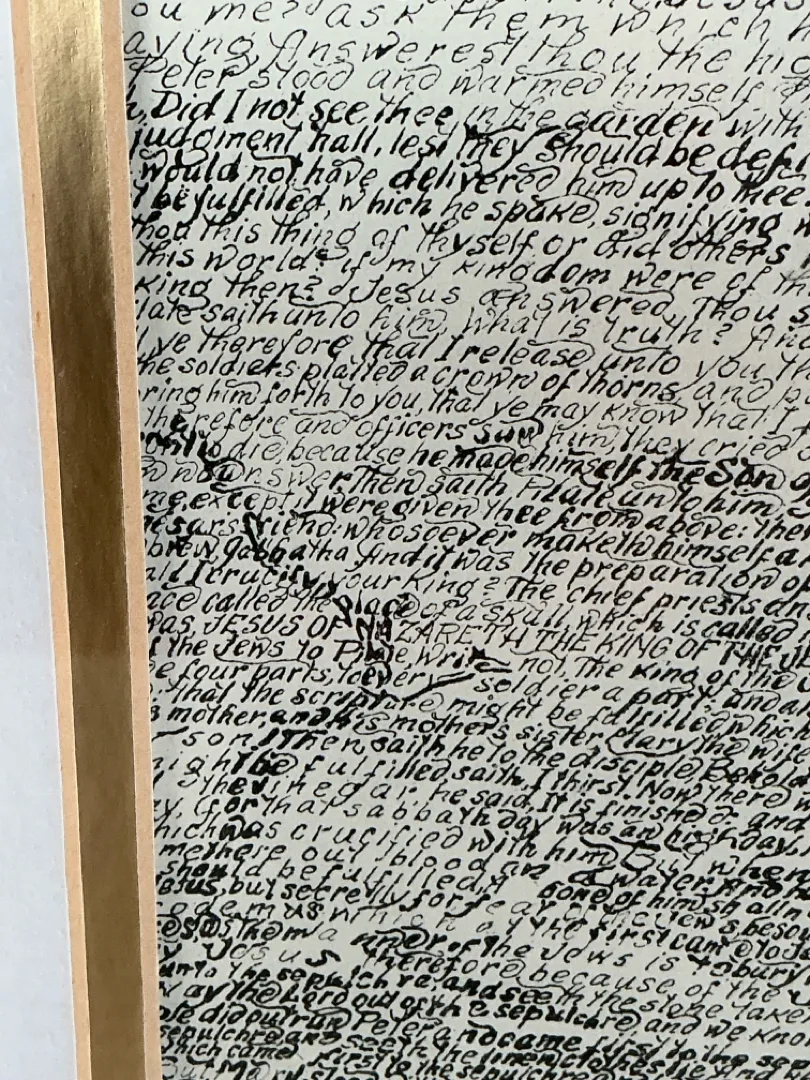 ou me? ask them which h
aying Answerest thou the hig
Peter stood and warmed himself
h, Did I not see thee in the garden with
judgment hall, lest they should be defi
would not have delivered him up to thee
be fulfilled, which he spake, signifying w
thou this thing of thyself or did others
this world: if my kingdom were of th
king then? Jesus answered, Thou s
late saith unto him, What is truth? And
ye therefore that I release unto you th
he soldiers platted a crown of thorns, and p
ring him forth to you, that ye may know that I
therefore and officers saw him, they cried
to die, because he made himself the Son o
answer Then saith Pilate unto him
me, except it were given thee from above: the
esars friend: whosoever maketh himself a
brew, Gabbatha And it was the preparation of
all I crucify your King? The chief priests an
ace called the place of a skull, which is called
as JESUS OF NAZARETH THE KING OF THE JE
f the Jews to Pilate, Write not, The king of the
e four parts, to every soldier a part; and a
: that the scripture might be fulfilled which
s mother, and his mothers sister, Mary the wife
son! Then saith he to the disciple, Behold
might be fulfilled, saith, I thirst. Now there
the vinegar, he said, It is finished: and
y, (for that sabbath day was an high day,
hich was crucified with him But when
came there out blood and water And
should be fulfilled, A bone of him shal
esus, but secretly for fear of the Jews, beso
odemus which at the first came to Je
manner of the Jews is to bury
Jesus therefore because of the
unto the sepulchre, and seeth the stone take
away the Lord out of the sepulchre, and we kno
ple did outrun Peter, and came first to the sep
which came first